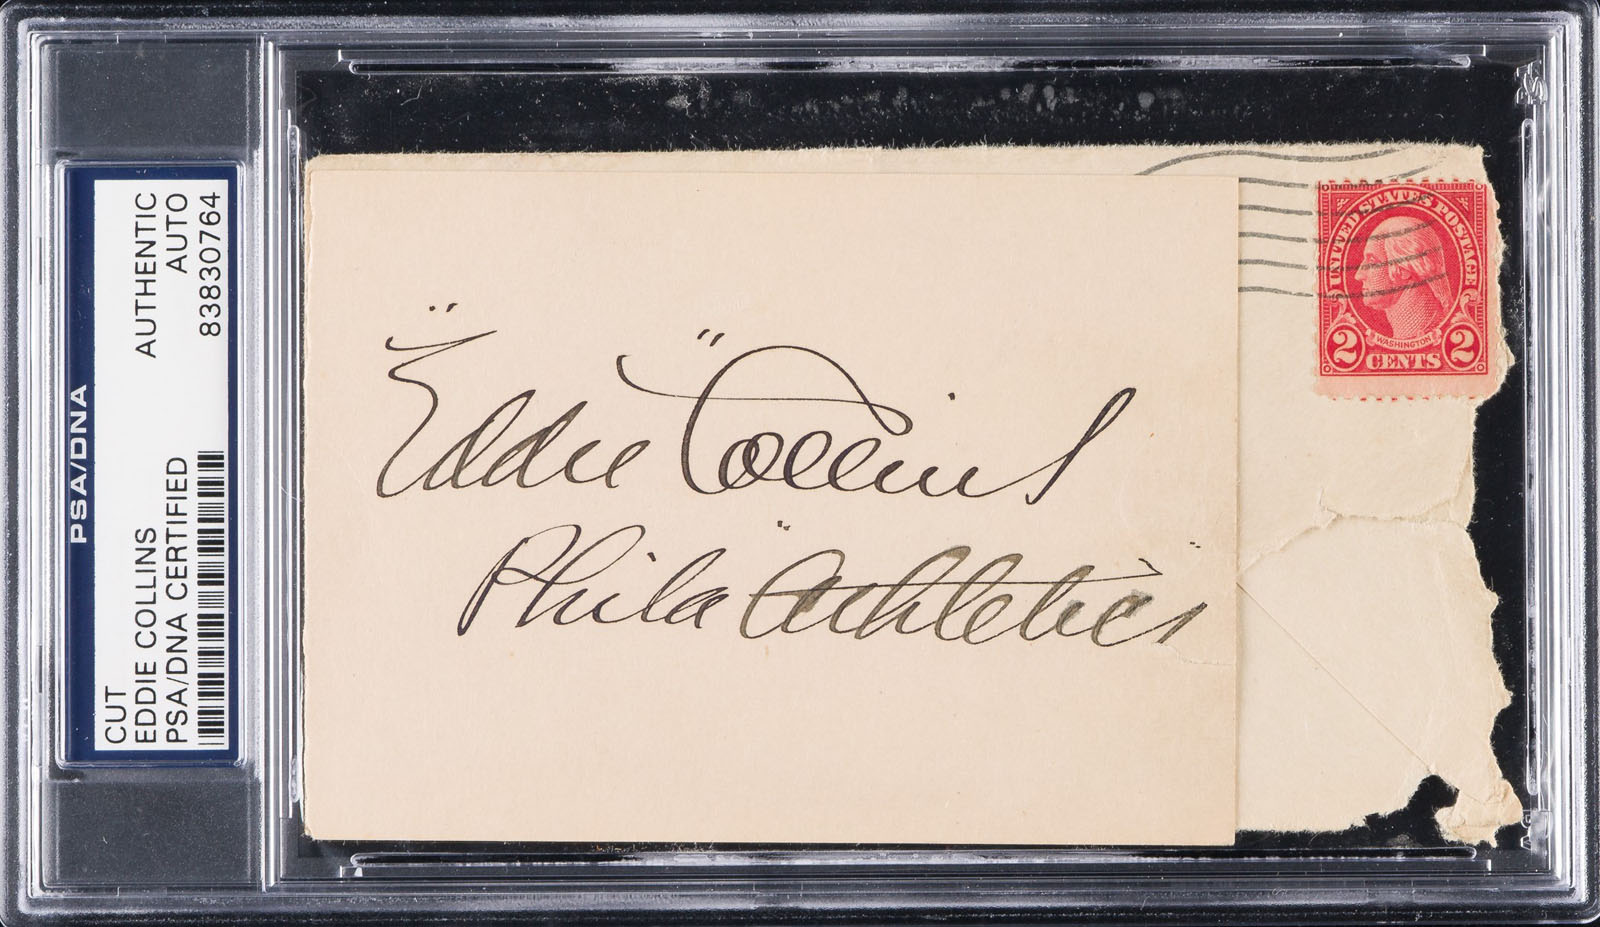 PSA/DNA
CUT
EDDIE COLLINS
PSA/DNA CERTIFIED
AUTHENTIC
AUTO
83830764
"Eddie" Collins
Phila "Athletics"
UNITED STATES POSTAGE
WASHINGTON
2 CENTS 2